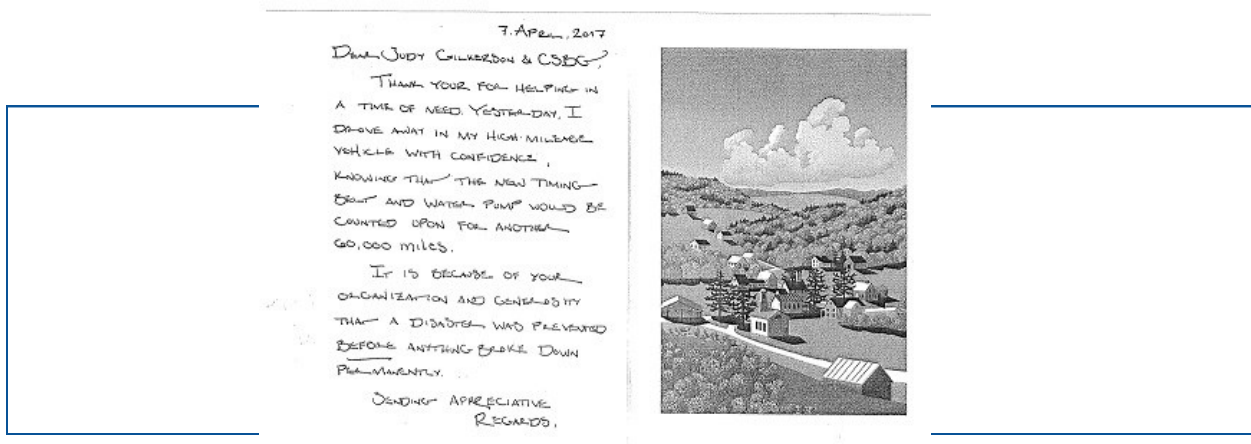 7. April, 2017
Dear Judy Gilkerson & CSBG,
Thank your for helping in
a time of need. Yesterday, I
drove away in my high-mileage
vehicle with confidence,
knowing that the new timing
belt and water pump would be
counted upon for another
60,000 miles.
It is because of your
organization and generosity
that a disaster was prevented
before anything broke down
permanently.
Sending appreciative
regards,